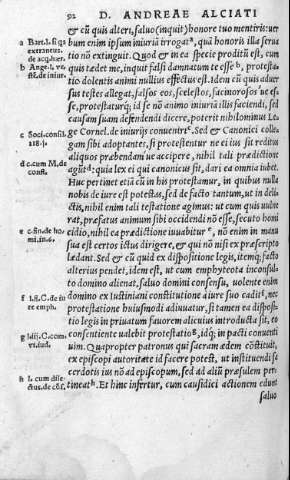 92 D. ANDREAE ALCIATI
& cũ quis alteri, saluo (inquit) honore tuo mentiris: uer
a Bart. l. si qs bum enim ipsum iniuriã irrogat a, quã honoris illa serua
tio nõ extinguit. Quod & in ea specie proditũ est, cum
b Ange. l. ue quis tædet me, inquit falsi damnatum te esse b, protesta-
tio dolentis animi nullius effectus est. Idem cũ quis aduer
sus testes allegat, falsos eos, scelestos, facinorosos ue es
se, protestaturq; id se nõ animo iniuriã illis faciendi, sed
causam suam defendendi dicere, poterit nihilominus Le
c Soci. consil. 218. ge Cornel. de iniurijs conueniri c. Sed & Canonici colle-
gam sibi adoptantes, si protestentur ne ei ius sit reditus
aliquos præbendam ue accipere, nihil tali prædictione
d c. cum M. de const. agũt d: quia lex ei qui canonicus sit, dari ea omnia iubet.
Huc pertinet etiã cũ in his protestamur, in quibus nulla
nobis de iure est potestas, sed de facto tantum, ut in deli-
ctis, nihil enim tali testatione agimus: ut cum quis iuɓe
rat, præfatus animum sibi occidendi nõ esse, secuto homi
e c. fi. de ho mi. in 6. cidio, nihil ea prædictione iuuabitur e, nõ enim in manu
sua est certos ictus dirigere, & qui nõ nisi ex præscripto
lædant. Sed & cũ quid ex dispositione legis, itemq; facto
alterius pendet, idem est, ut cum emphyteota inconsul-
to domino alienat, saluo domini consensu, uolente enim
domino ex iustiniani constitutione a iure suo cadit f, nec
protestatione huiusmodi adiuuatur, si tamen ea disposi-
tio legis in priuatum fauorem alicuius introducta sit, eo
consentiente ualebit protestatio g, idq; in pacti conuenti
uim. Quapropter patronus qui sacram ædem cõstituit,
ex episcopi autoritate id facere potest, ut instituendi sa
cerdotis ius nõ ad episcopum, sed ad aliũ præsulem per-
tineat h. Et hinc infertur, cum causidici actionem edunt
saluo